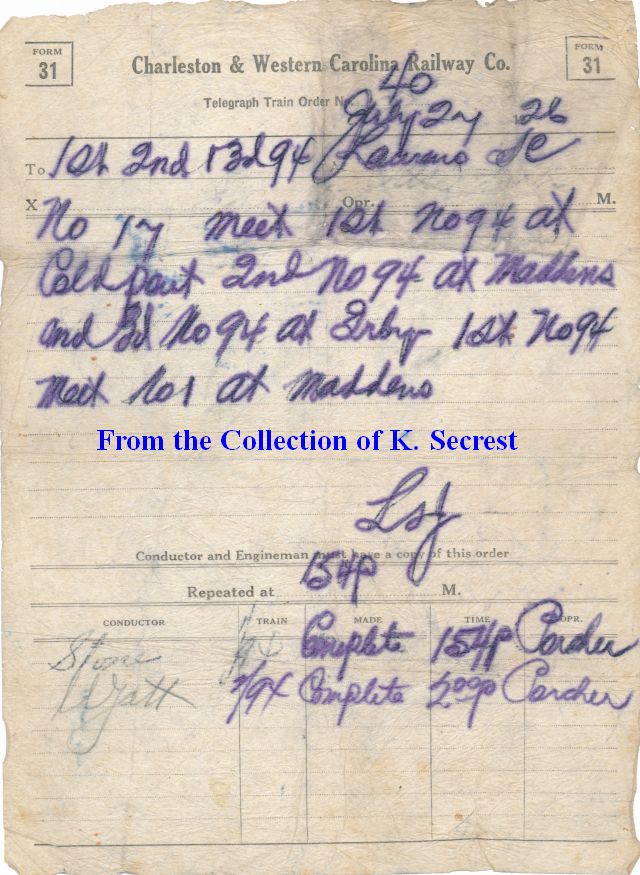 FORM 31
Charleston & Western Carolina Railway Co.
FORM 31
Telegraph Train Order No. 40
July 27 1926
To 1st 2nd & 3d 94 Laurens SC
X Opr. M.
No 17 meet 1st No 94 at
Cold Point 2nd No 94 at Maddens
and 3d No 94 at Irby 1st No 94
meet No 1 at Maddens
LSJ
Conductor and Engineman must have a copy of this order
Repeated at 154P M.
CONDUCTOR TRAIN MADE TIME OPR.
Stone 94 Complete 154P Corcher
Wyatt 2/94 Complete 200P Corcher
From the Collection of K. Secrest